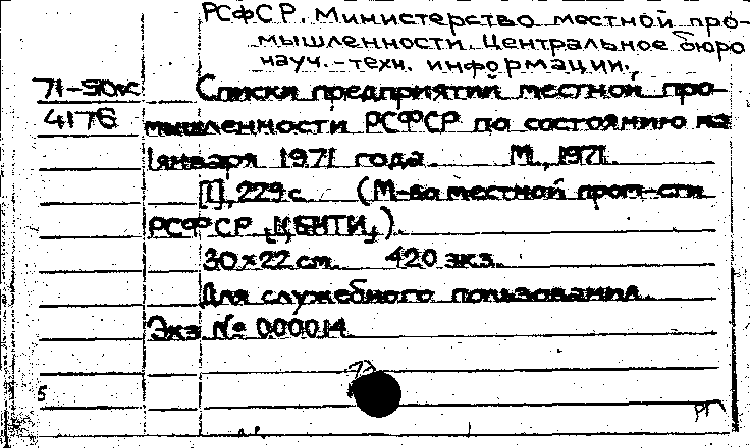 РСФСР. Министерство местной про-
мышленности. Центральное бюро
науч.-техн. информации.
71-50кс Списки предприятий местной про-
4176 мышленности РСФСР по состоянию на
1 января 1971 года. М., 1971.
[1], 229 с. (М-во местной пром-сти
РСФСР. ЦБНТИ).
30×22 см. 420 экз.
Для служебного пользования.
Экз. № 000014.
5
РГ